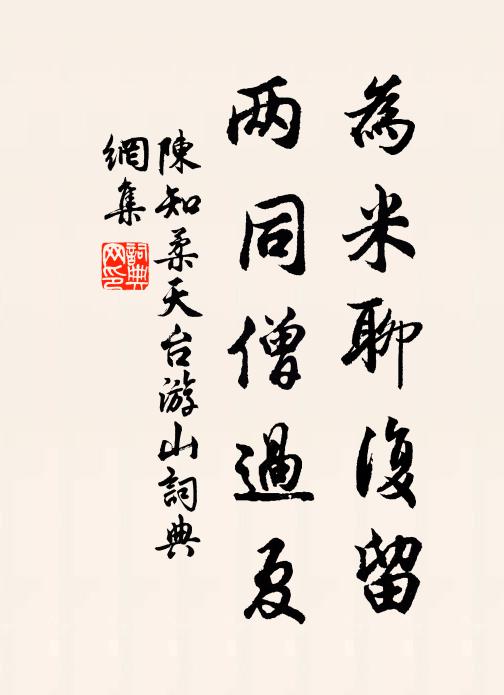 為米聊復留
两同僧過夏
陳知柔天台游山詞典
網集
詞典网印